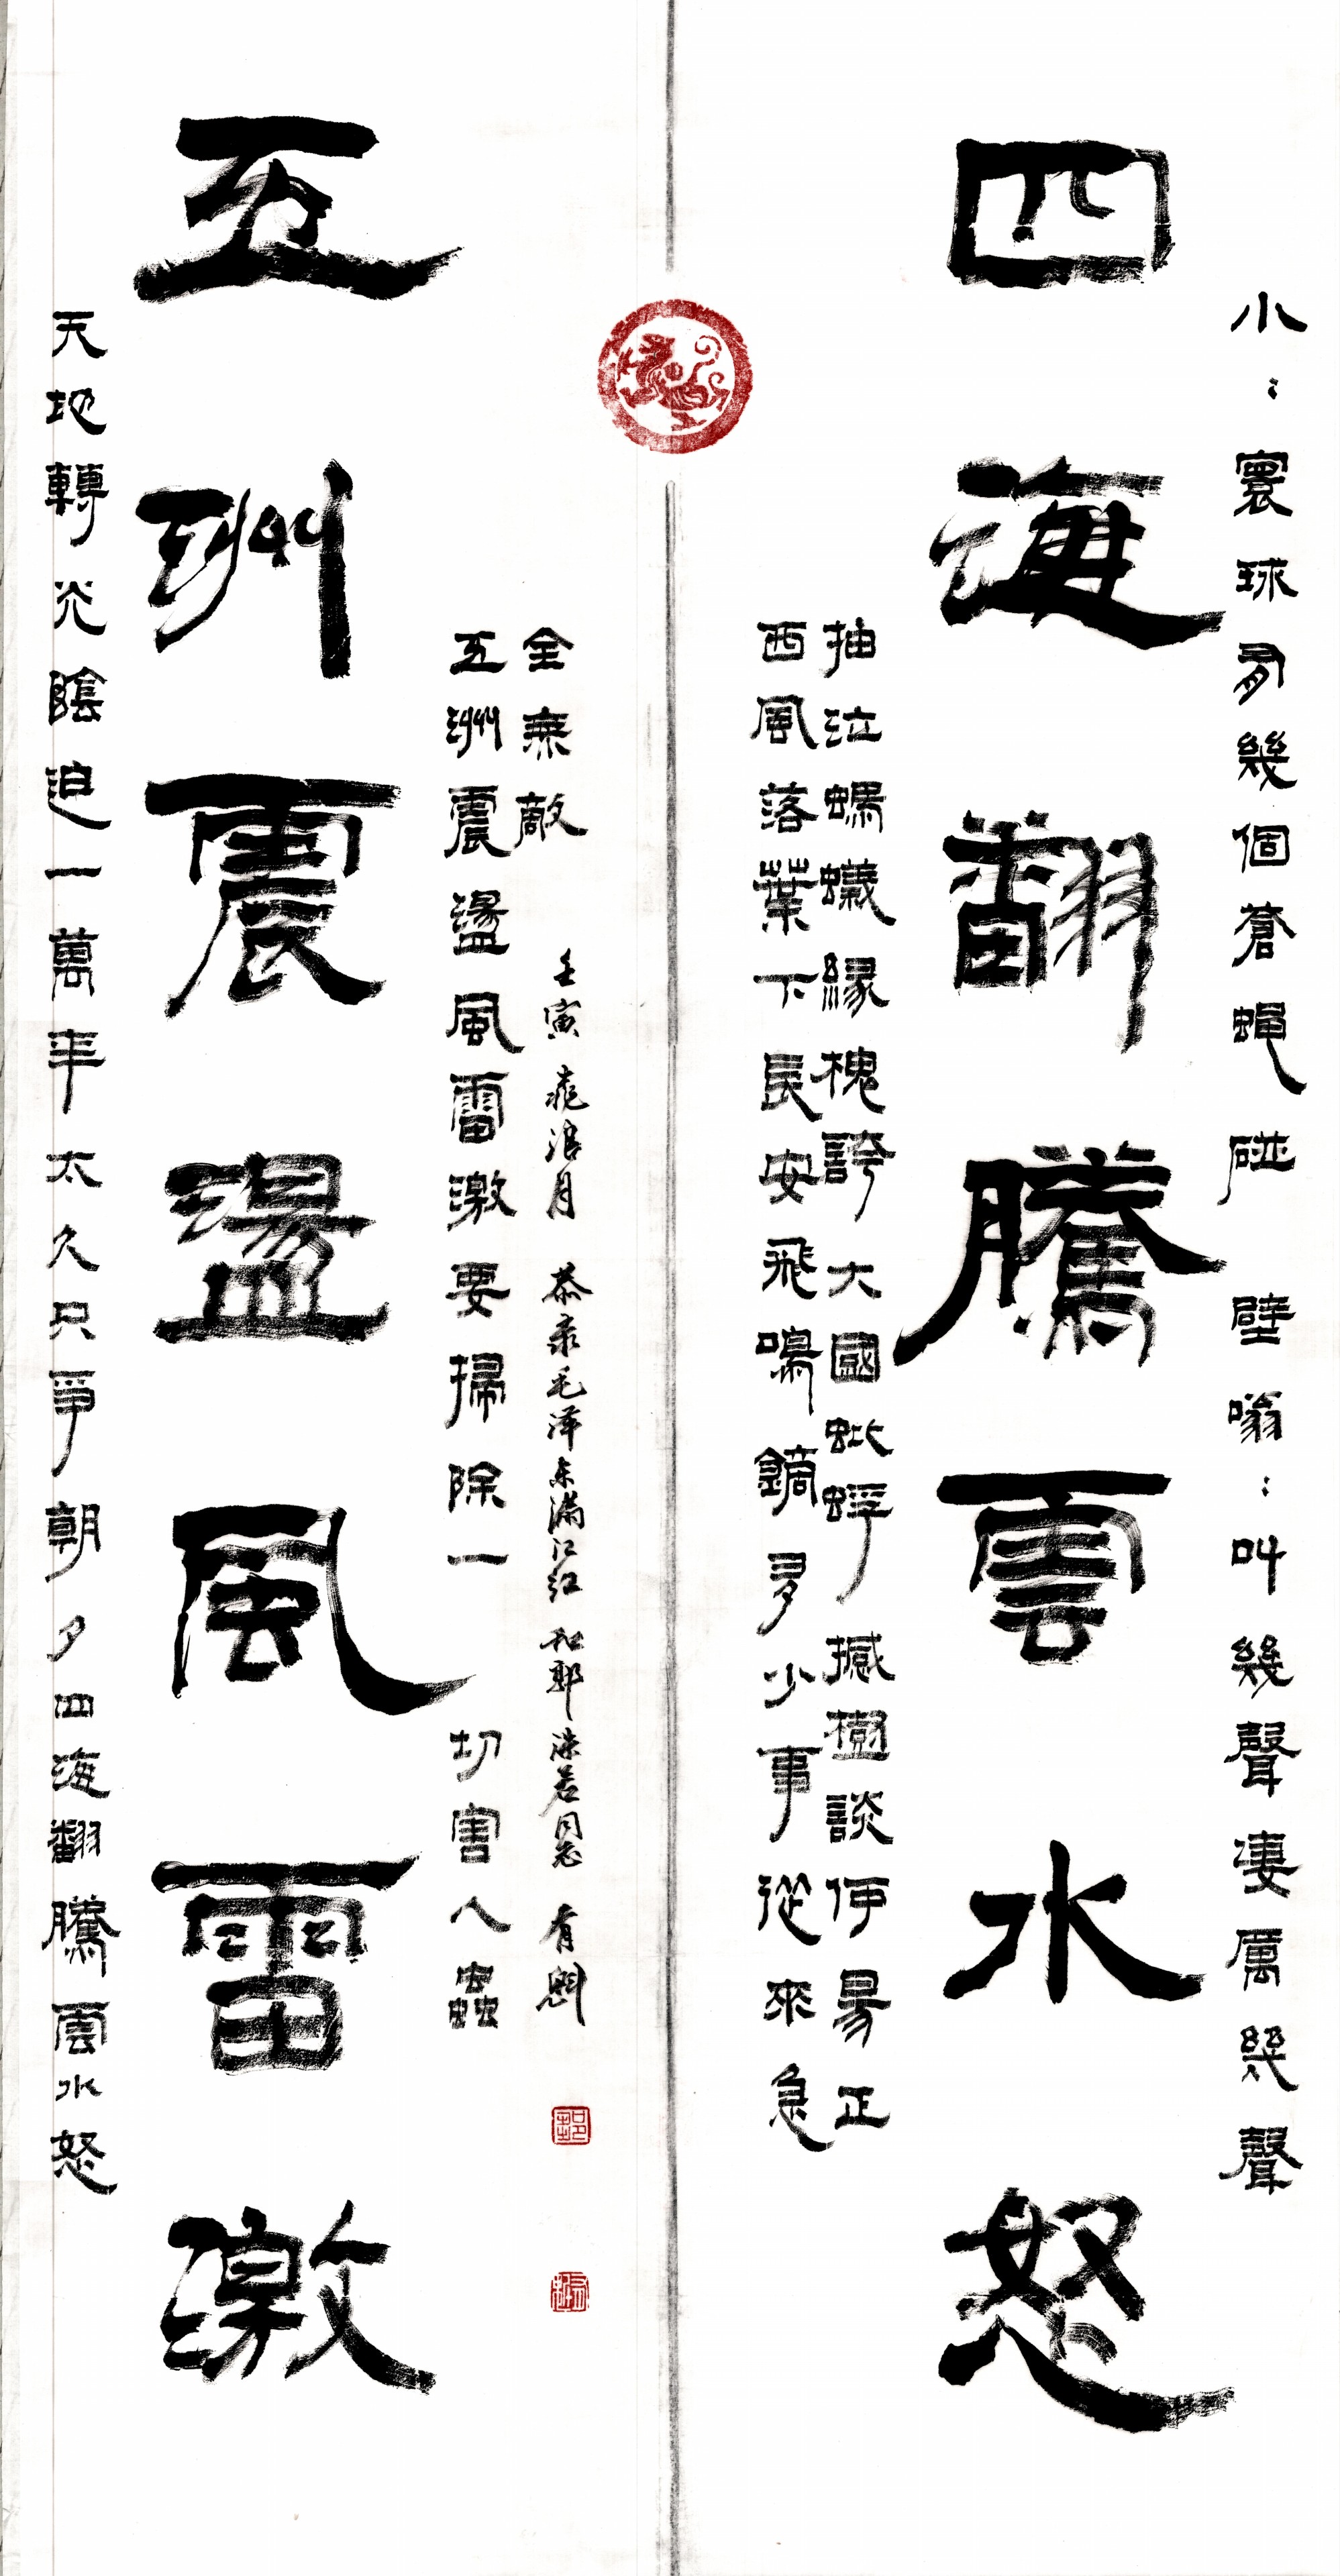 小：寰球有幾個蒼蠅碰壁嗡：叫幾聲凄厲幾聲
四海翻騰雲水怒
抽泣螞蟻緣槐誇大國蚍蜉撼樹談何易正
西風落葉下長安飛鳴鏑多少事從來急
天地轉光陰迫一萬年太久只爭朝夕四海翻騰雲水怒
五洲震盪風雷激
五洲震盪風雷激要掃除一切害人蟲
全無敵
壬寅桃浪月恭录毛泽东满江红和郭沫若同志有魁